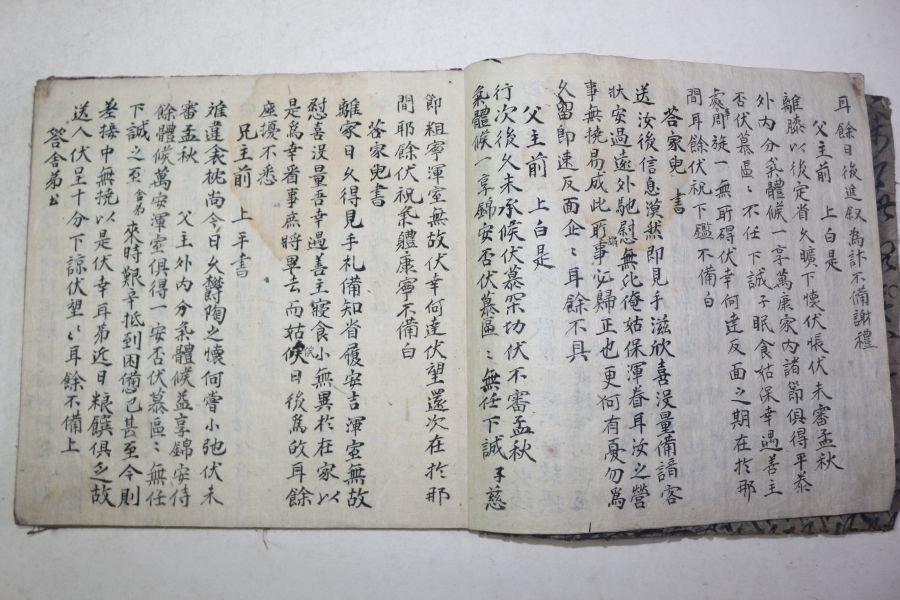 耳餘日後進叙為計不備謝禮
父主前 上白是
離膝以後定省久曠下懷伏悵伏未審孟秋
外内分氣體候一享萬康家内諸節俱得平泰
否伏慕區〻不任下誠子眠食姑保幸過善主
處即旋一無所碍伏幸何達反面之期在於那
間耳餘伏祝下鑑不備白
答家児書
送汝後信息漠然即見手滋欣喜没量備諳客
狀安過遠外馳慰無比俺姑保渾眷耳汝之營
事無撓易成此所事必歸正也更何有憂勿為
久留即速反面企〻耳餘不具
父主前 上白是
行次後久未承候伏慕罙切伏不審孟秋
氣體候一享錦安否伏慕區〻無任下誠子慈
節粗寧渾室無故伏幸何達伏望還次在於那
間耶餘伏祝氣體康寧不備白
答家児書
離家日久得見手札備知省履安吉渾室無故
慰喜没量吾幸過善主寢食小無異於在家以
是為幸看事庶將畢去而姑俟日後為故耳餘
座擾不悉
兄主前 上平書
雖違衾枕尚今日久鬱陶之懷何嘗小弛伏未
審孟秋 父主外内分氣體候益享錦安侍
餘體候萬安渾室俱得一安否伏慕區〻無任
下誠之至舍弟來時艱辛抵到困憊已甚至今則
差接中無撓以是伏幸耳弟近日粮饌俱乏故
送人伏呈十分下諒伏望〻耳餘不備上
答舍弟書